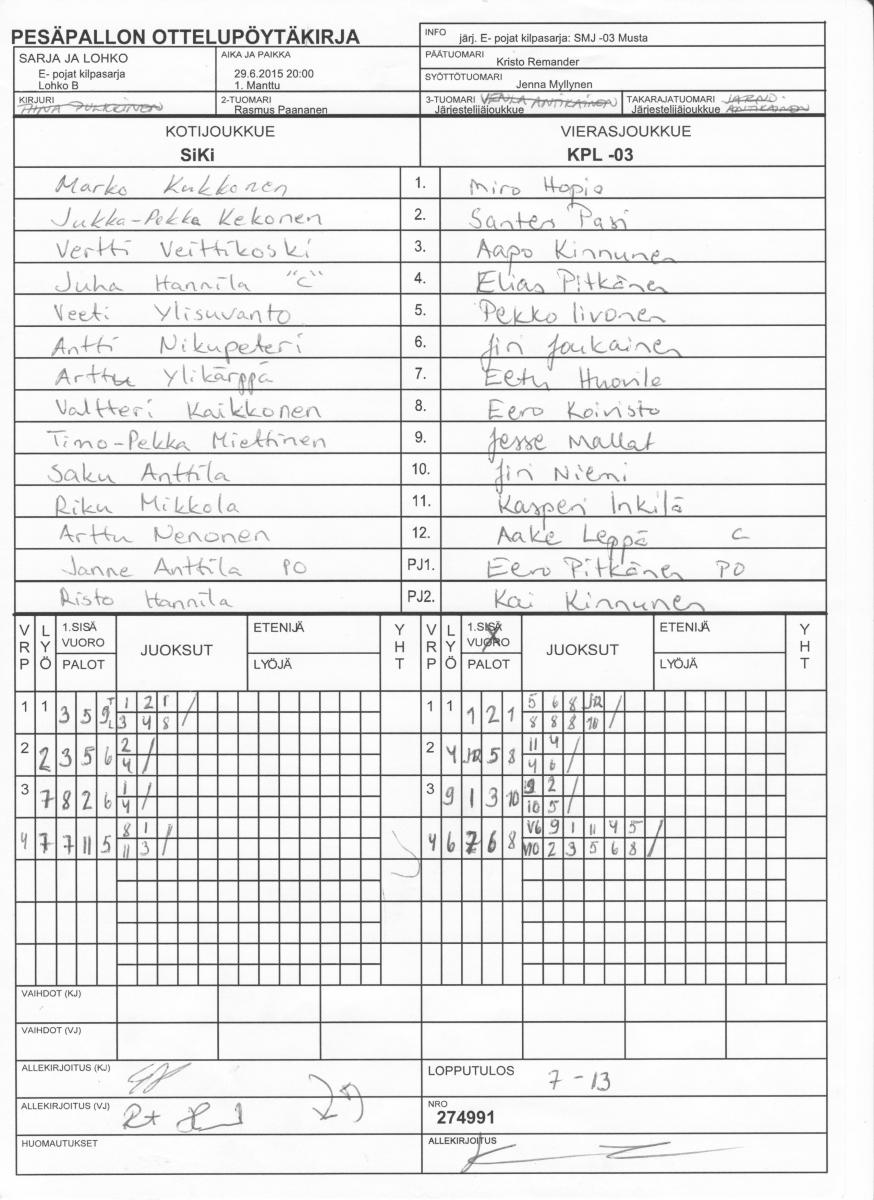 PESÄPALLON OTTELUPÖYTÄKIRJA
INFO järj. E- pojat kilpasarja: SMJ -03 Musta
PÄÄTUOMARI Kristo Remander
SYÖTTÖTUOMARI Jenna Myllynen
SARJA JA LOHKO
E- pojat kilpasarja
Lohko B
AIKA JA PAIKKA
29.6.2015 20:00
1. Manttu
KIRJURI
2-TUOMARI
Rasmus Paananen
3-TUOMARI VENLA ANTIKAINEN
Järjestelijäjoukkue
TAKARAJATUOMARI JARNO
Järjestelijäjoukkue ANTIKAINEN
KOTIJOUKKUE VIERASJOUKKUE
SiKi KPL -03
Marko Kukkonen 1. Miro Hopia
Jukka-Pekka Kekonen 2. Santer Pasi
Vertti Veittikoski 3. Aapo Kinnunen
Juha Hannila "C" 4. Elias Pitkänen
Veeti Ylisuvanto 5. Pekko Iivonen
Antti Nikupeteri 6. Jiri Joukainen
Arttu Ylikärppä 7. Eetu Huovila
Valtteri Kaikkonen 8. Eero Koivisto
Timo-Pekka Miettinen 9. Jesse Mallat
Saku Anttila 10. Jiri Niemi
Riku Mikkola 11. Kasperi Inkilä
Arttu Nenonen 12. Aake Leppä C
Janne Anttila PO PJ1. Eero Pitkänen PO
Risto Hannila PJ2. Kai Kinnunen
VRP LYÖ 1.SISÄ VUORO PALOT JUOKSUT ETENIJÄ LYÖJÄ YHT VRP LYÖ 1.SISÄ VUORO PALOT JUOKSUT ETENIJÄ LYÖJÄ YHT
1 1 3 5 9 1 2 1 / 1 1 1 2 1 5 6 8 /
3 4 8 8 8 8 10
2 2 3 5 6 2 / 2 4 5 8 11 4 /
4 4 6
3 7 8 2 6 1 / 3 9 1 3 10 9 2 /
4 10 5
4 7 7 11 5 8 1 / 4 6 7 6 8 V6 9 1 11 4 5 /
11 3 V10 2 3 5 6 8
VAIHDOT (KJ)
VAIHDOT (VJ)
ALLEKIRJOITUS (KJ) LOPPUTULOS 7 - 13
ALLEKIRJOITUS (VJ) NRO
274991
HUOMAUTUKSET ALLEKIRJOITUS